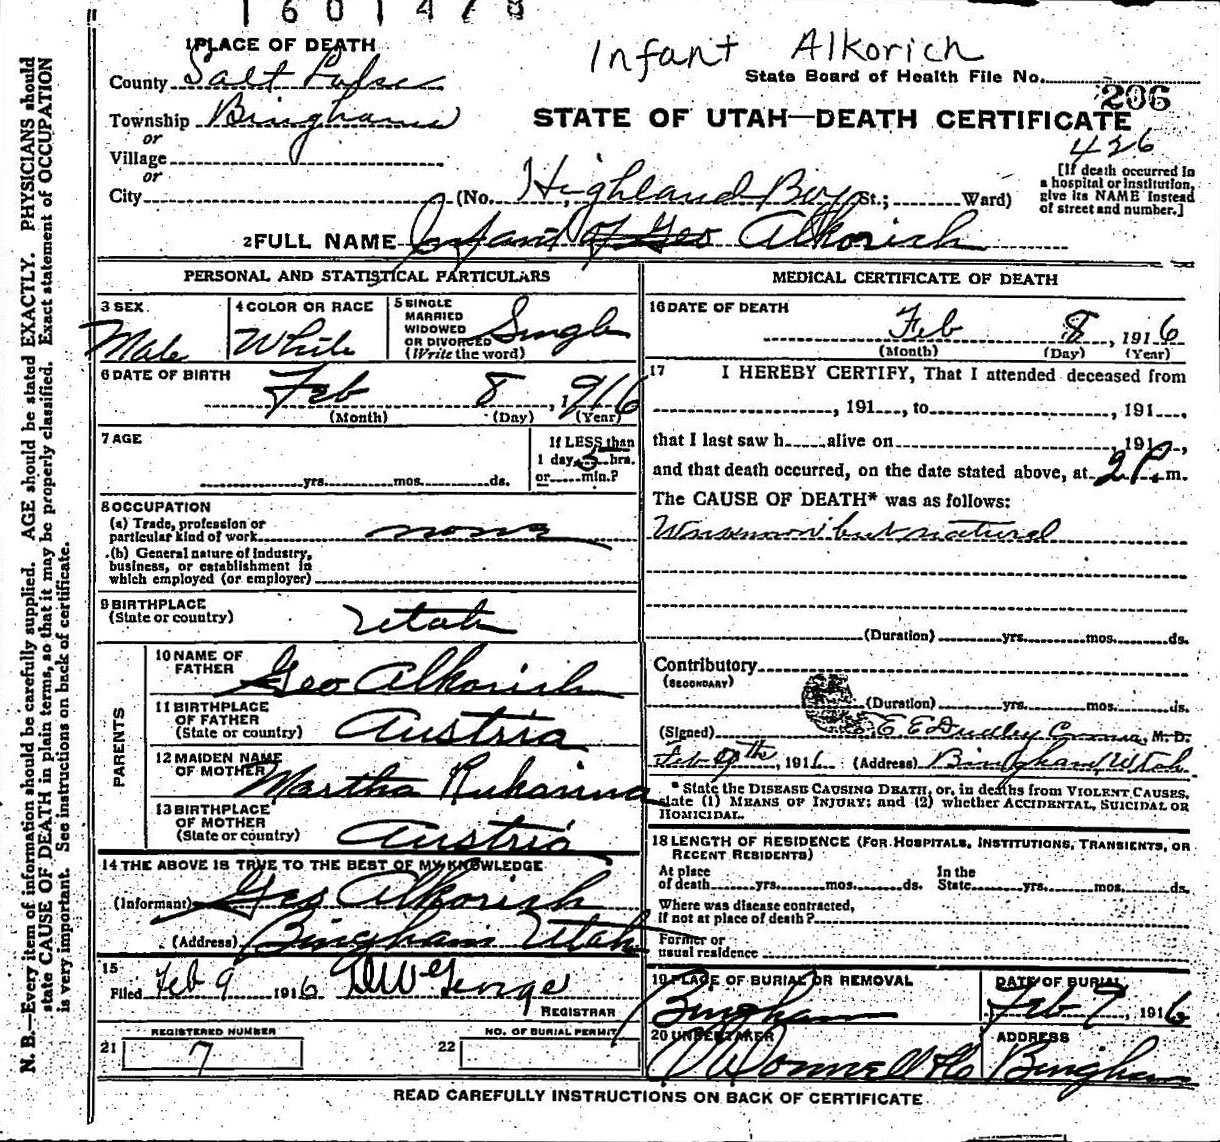 1601478
Infant Alkorich
1 PLACE OF DEATH
County Salt Lake
State Board of Health File No. 206
Township Bingham
STATE OF UTAH—DEATH CERTIFICATE
or
426
Village
or
City (No. Highland Boy St.; Ward)
[If death occurred in
a hospital or institution,
give its NAME instead
of street and number.]
2 FULL NAME Infant of Geo Alkorich
PERSONAL AND STATISTICAL PARTICULARS
3 SEX
Male
4 COLOR OR RACE
White
5 SINGLE
MARRIED
WIDOWED
OR DIVORCED
(Write the word)
Single
6 DATE OF BIRTH
Feb 8, 1916
(Month) (Day) (Year)
7 AGE
yrs. mos. ds.
If LESS than
1 day, 3 hrs.
or min.?
8 OCCUPATION
(a) Trade, profession or
particular kind of work none
(b) General nature of industry,
business, or establishment in
which employed (or employer)
9 BIRTHPLACE
(State or country) Utah
PARENTS
10 NAME OF
FATHER Geo Alkorich
11 BIRTHPLACE
OF FATHER
(State or country) Austria
12 MAIDEN NAME
OF MOTHER Martha
13 BIRTHPLACE
OF MOTHER
(State or country) Austria
14 THE ABOVE IS TRUE TO THE BEST OF MY KNOWLEDGE
(Informant) Geo Alkorich
(Address) Bingham Utah
15
Filed Feb 9 1916
REGISTRAR
REGISTERED NUMBER
21 7
NO. OF BURIAL PERMIT
22
MEDICAL CERTIFICATE OF DEATH
16 DATE OF DEATH
Feb 8, 1916
(Month) (Day) (Year)
17 I HEREBY CERTIFY, That I attended deceased from
, 191 , to , 191 ,
that I last saw h alive on , 191 ,
and that death occurred, on the date stated above, at 2 P. m.
The CAUSE OF DEATH* was as follows:
but natural
(Duration) yrs. mos. ds.
Contributory
(SECONDARY)
(Duration) yrs. mos. ds.
(Signed) E E Dudley M. D.
Feb 9th, 1916 (Address) Bingham, Utah
* State the DISEASE CAUSING DEATH, or, in deaths from VIOLENT CAUSES,
state (1) MEANS OF INJURY; and (2) whether ACCIDENTAL, SUICIDAL OR
HOMICIDAL.
18 LENGTH OF RESIDENCE (FOR HOSPITALS, INSTITUTIONS, TRANSIENTS, OR
RECENT RESIDENTS)
At place
of death yrs. mos. ds.
In the
State yrs. mos. ds.
Where was disease contracted,
if not at place of death?
Former or
usual residence
19 PLACE OF BURIAL OR REMOVAL
Bingham
DATE OF BURIAL
Feb 9, 1916
20 UNDERTAKER
ADDRESS
Bingham
READ CAREFULLY INSTRUCTIONS ON BACK OF CERTIFICATE
N. B.—Every item of information should be carefully supplied. AGE should be stated EXACTLY. PHYSICIANS should
state CAUSE OF DEATH in plain terms, so that it may be properly classified. Exact statement of OCCUPATION
is very important. See instructions on back of certificate.